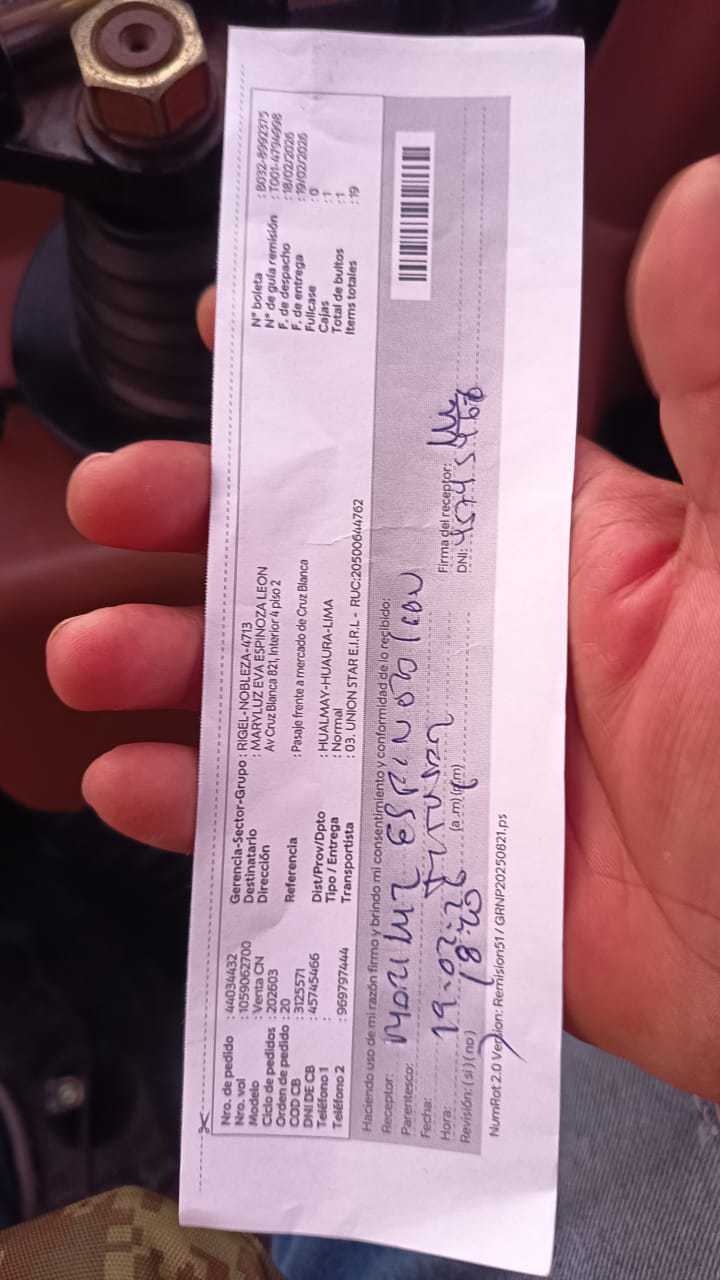 Nro. de pedido : 44034432
Nro. vol : 1059062700
Modelo : Venta CN
Ciclo de pedidos : 202603
Orden de pedido : 20
COD CB : 3125571
DNI DE CB : 45745466
Teléfono 1 :
Teléfono 2 : 969797444
Gerencia-Sector-Grupo : RIGEL-NOBLEZA-4713
Destinatario : MARYLUZ EVA ESPINOZA LEON
Dirección Av Cruz Blanca 821, Interior 4 piso 2
Referencia : Pasaje frente a mercado de Cruz Blanca
Dist/Prov/Dpto : HUALMAY-HUAURA-LIMA
Tipo / Entrega : Normal
Transportista : 03. UNION STAR E.I.R.L - RUC:20500644762
N° boleta : B032-8992375
N° de guía remisión : T001-4794998
F. de despacho : 18/02/2026
F. de entrega : 19/02/2026
Fullcase : 0
Cajas : 1
Total de bultos : 1
Items totales : 19
Haciendo uso de mi razón firmo y brindo mi consentimiento y conformidad de lo recibido:
Receptor: MARILUZ ESPINOZA LEON
Parentesco:
Fecha: 19.02.26
Firma del receptor:
Hora: 18:20 (a.m)(p.m)
DNI: 45745466
Revisión: (si)(no)
NumRot 2.0 Version: Remision51 / GRNP20250821.ps